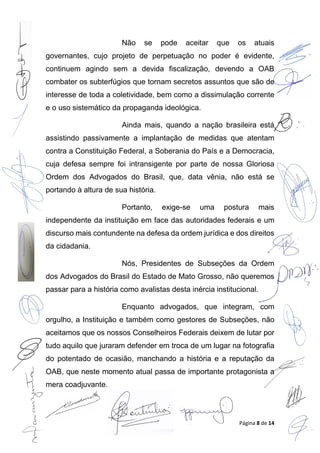 Não se pode aceitar que os atuais
governantes, cujo projeto de perpetuação no poder é evidente,
continuem agindo sem a devida fiscalização, devendo a OAB
combater os subterfúgios que tornam secretos assuntos que são de
interesse de toda a coletividade, bem como a dissimulação corrente
e o uso sistemático da propaganda ideológica.
Ainda mais, quando a nação brasileira está
assistindo passivamente a implantação de medidas que atentam
contra a Constituição Federal, a Soberania do País e a Democracia,
cuja defesa sempre foi intransigente por parte de nossa Gloriosa
Ordem dos Advogados do Brasil, que, data vênia, não está se
portando à altura de sua história.
Portanto, exige-se uma postura mais
independente da instituição em face das autoridades federais e um
discurso mais contundente na defesa da ordem jurídica e dos direitos
da cidadania.
Nós, Presidentes de Subseções da Ordem
dos Advogados do Brasil do Estado de Mato Grosso, não queremos
passar para a história como avalistas desta inércia institucional.
Enquanto advogados, que integram, com
orgulho, a Instituição e também como gestores de Subseções, não
aceitamos que os nossos Conselheiros Federais deixem de lutar por
tudo aquilo que juraram defender em troca de um lugar na fotografia
do potentado de ocasião, manchando a história e a reputação da
OAB, que neste momento atual passa de importante protagonista a
mera coadjuvante.
Página 8 de 14